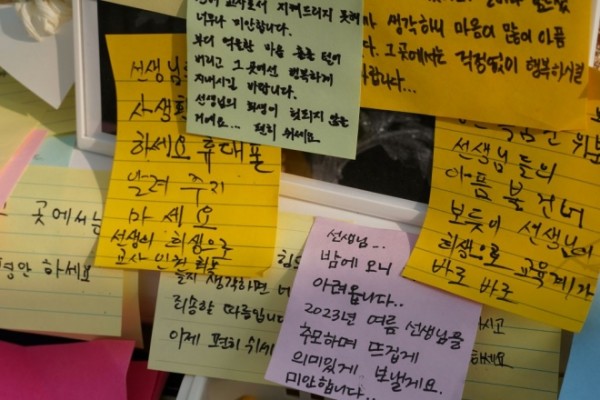 교사로서 지켜드리지 못해
너무나 미안합니다.
부디 억울한 마음
버리고 그곳에서 행복하게
지내시길 바랍니다.
선생님의 희생이 헛되지 않는
편히 쉬세요
생각하니 마음이 많이 아픔
다. 그곳에서는 걱정없이 행복하시길
합니다...
선생님
사생활
하세요 휴대폰
알려 주지
마세요
선생의 희생으로
교사 인권
선생님들의
아픔
보듯이 선생님의
희생으로 교육계가
바로 바로
곳에서는
평안 하세요
생각하면
죄송할 따름입니다
이제 편히 쉬세
선생님...
밤에 오니
아려옵니다..
2023년 여름 선생님을
추모하며 뜨겁게
의미있게 보낼게요.
미안합니다..